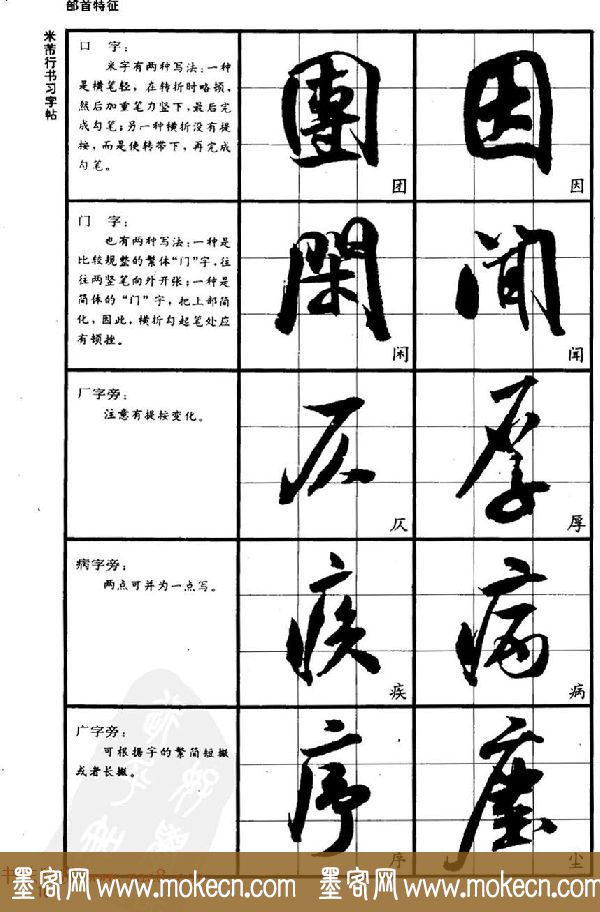 部首特征
米芾行书习字帖
口　字：
米字有两种写法：一种
是横笔轻，在转折时略顿，
然后加重笔力竖下，最后完
成勾笔；另一种横折没有提
按，而是使转带下，再完成
勾笔。
團
团
因
因
门　字：
也有两种写法：一种是
比较规整的繁体“门”字，往
往两竖笔向外开张；一种是
简体的“门”字，把上部简
化，因此，横折勾起笔处应
有顿挫。
閑
闲
闻
闻
厂字旁：
注意有提按变化。
仄
仄
厚
厚
病字旁：
两点可并为一点写。
疾
疾
病
病
广字旁：
可根据字的繁简短撇
或者长撇。
序
序
塵
尘
墨客网 www.mokecn.com 墨客网 www.mokecn.com